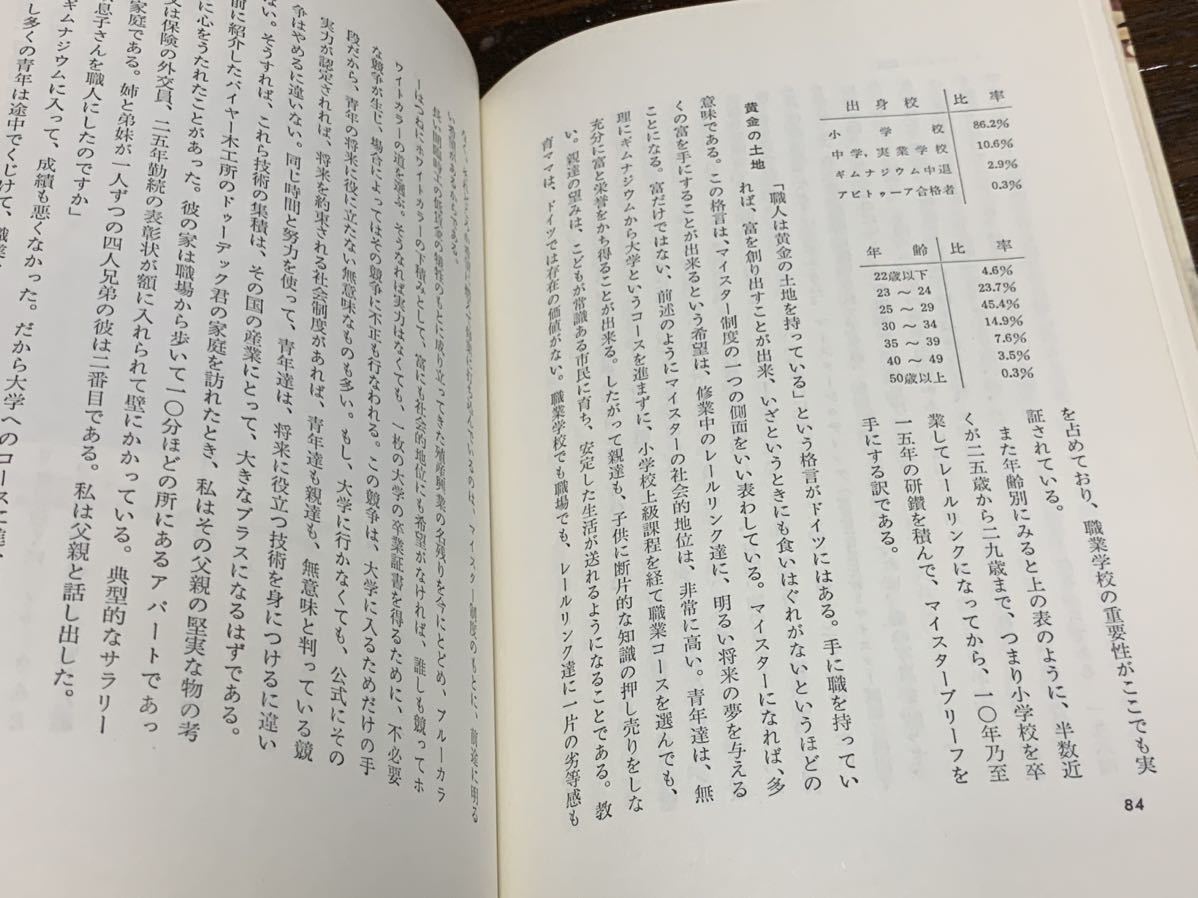 出身校 比率
小学校 86.2%
中学、実業学校 10.6%
ギムナジウム中退 2.9%
アビトゥーア合格者 0.3%
年齢 比率
22歳以下 4.6%
23〜24 23.7%
25〜29 45.4%
30〜34 14.9%
35〜39 7.6%
40〜49 3.5%
50歳以上 0.3%
を占めており、職業学校の重要性がここでも実
証されている。
また年齢別にみると上の表のように、半数近
くが二五歳から二九歳まで、つまり小学校を卒
業してレールリンクになってから、一〇年乃至
一五年の研鑽を積んで、マイスターブリーフを
手にする訳である。
黄金の土地
「職人は黄金の土地を持っている」という格言がドイツにはある。手に職を持ってい
れば、富を創り出すことが出来、いざというときにも食いはぐれがないというほどの
意味である。この格言は、マイスター制度の一つの側面をいい表わしている。マイスターになれば、多
くの富を手にすることが出来るという希望は、修業中のレールリンク達に、明るい将来の夢を与える
ことになる。富だけではない、前述のようにマイスターの社会的地位は、非常に高い。青年達は、無
理にギムナジウムから大学というコースを進まずに、小学校上級課程を経て職業コースを選んでも、
充分に富と栄誉をかち得ることが出来る。したがって親達も、子供に断片的な知識の押し売りをしな
い。親達の望みは、こどもが常識ある市民に育ち、安定した生活が送れるようになることである。教
育ママは、ドイツでは存在の価値がない。職業学校でも職場でも、レールリンク達に一片の劣等感も
84
マイスター制度のもとに、前途に明る
い希望があるからである。
長い間低賃金の犠牲のもとに成り立ってきた殖産興業の名残りを今にとどめ、ブルーカラ
ーはつねにホワイトカラーの下積みとして、富にも社会的地位にも希望がなければ、誰しも競ってホ
ワイトカラーの道を選ぶ。そうなれば実力はなくても、一枚の大学の卒業証書を得るために、不必要
な競争が生じ、場合によってはその競争に不正も行なわれる。この競争は、大学に入るためだけの手
段だから、青年の将来に役に立たない無意味なものも多い。もし、大学に行かなくても、公式にその
実力が認定されれば、将来を約束される社会制度があれば、青年達も親達も、無意味と判っている競
争はやめるに違いない。同じ時間と努力を使って、青年達は、将来に役立つ技術を身につけるに違い
ない。そうすれば、これら技術の集積は、その国の産業にとって、大きなプラスになるはずである。
前に紹介したバイヤー木工所のドゥーデック君の家庭を訪れたとき、私はその父親の堅実な物の考
に心をうたれたことがあった。彼の家は職場から歩いて一〇分ほどの所にあるアパートであっ
又は保険の外交員、二五年勤続の表彰状が額に入れられて壁にかかっている。典型的なサラリー
家庭である。姉と弟妹が一人ずつの四人兄弟の彼は二番目である。私は父親と話し出した。
息子さんを職人にしたのですか」
ギムナジウムに入って、成績も悪くなかった。だから大学へのコースに
し多くの青年は途中でくじけて、職業